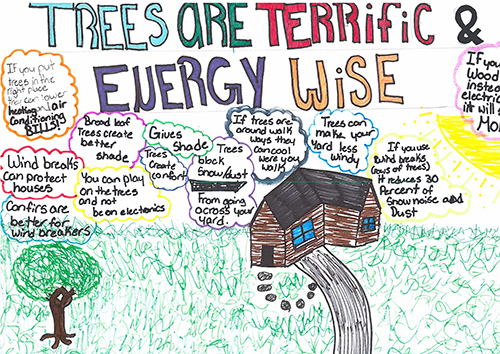 TREES ARE TERRiFiC &
ENERGY WiSE
If you put
trees in the
right place
they can lower
heating and air
conditioning
BILLS!
Broad leaf
Trees create
better
shade
Gives
shade
Trees
create
comfort
Trees
block
Snow/dust
From going
across your
yard.
If trees are
around walk
ways they
can cool
were you
walk
Trees can
make your
Yard less
windy
If you use
wind breaks
(rows of trees)
It reduces 30
Percent of
Snow noise and
Dust
If you
Wood
instea
electri
it will s
Mo
Wind breaks
can protect
houses
You can play
on the trees
and not
be on electonics
Confirs are
better for
wind breakers